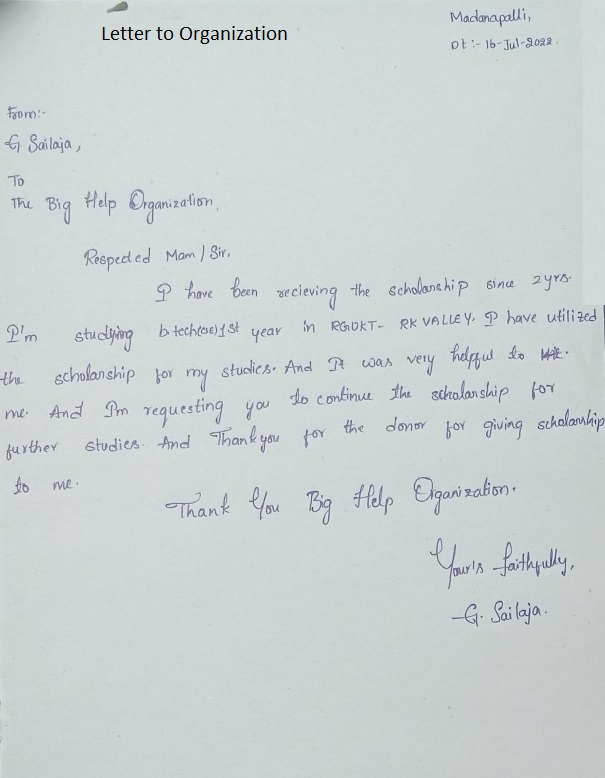 Letter to Organization
Madanapalli,
Dt :- 16-Jul-2022.
From:-
G Sailaja,
To
The Big Help Organization,
Respected Mam / Sir,
I have been recieving the scholarship since 2yrs.
I'm studying b.tech(cse)1st year in RGUKT- RK VALLEY. I have utilized
the scholarship for my studies. And It was very helpful to
me. And I'm requesting you to continue the scholarship for
further studies. And Thankyou for the donor for giving scholarship
to me.
Thank You Big Help Organization.
Your's faithfully,
G. Sailaja.